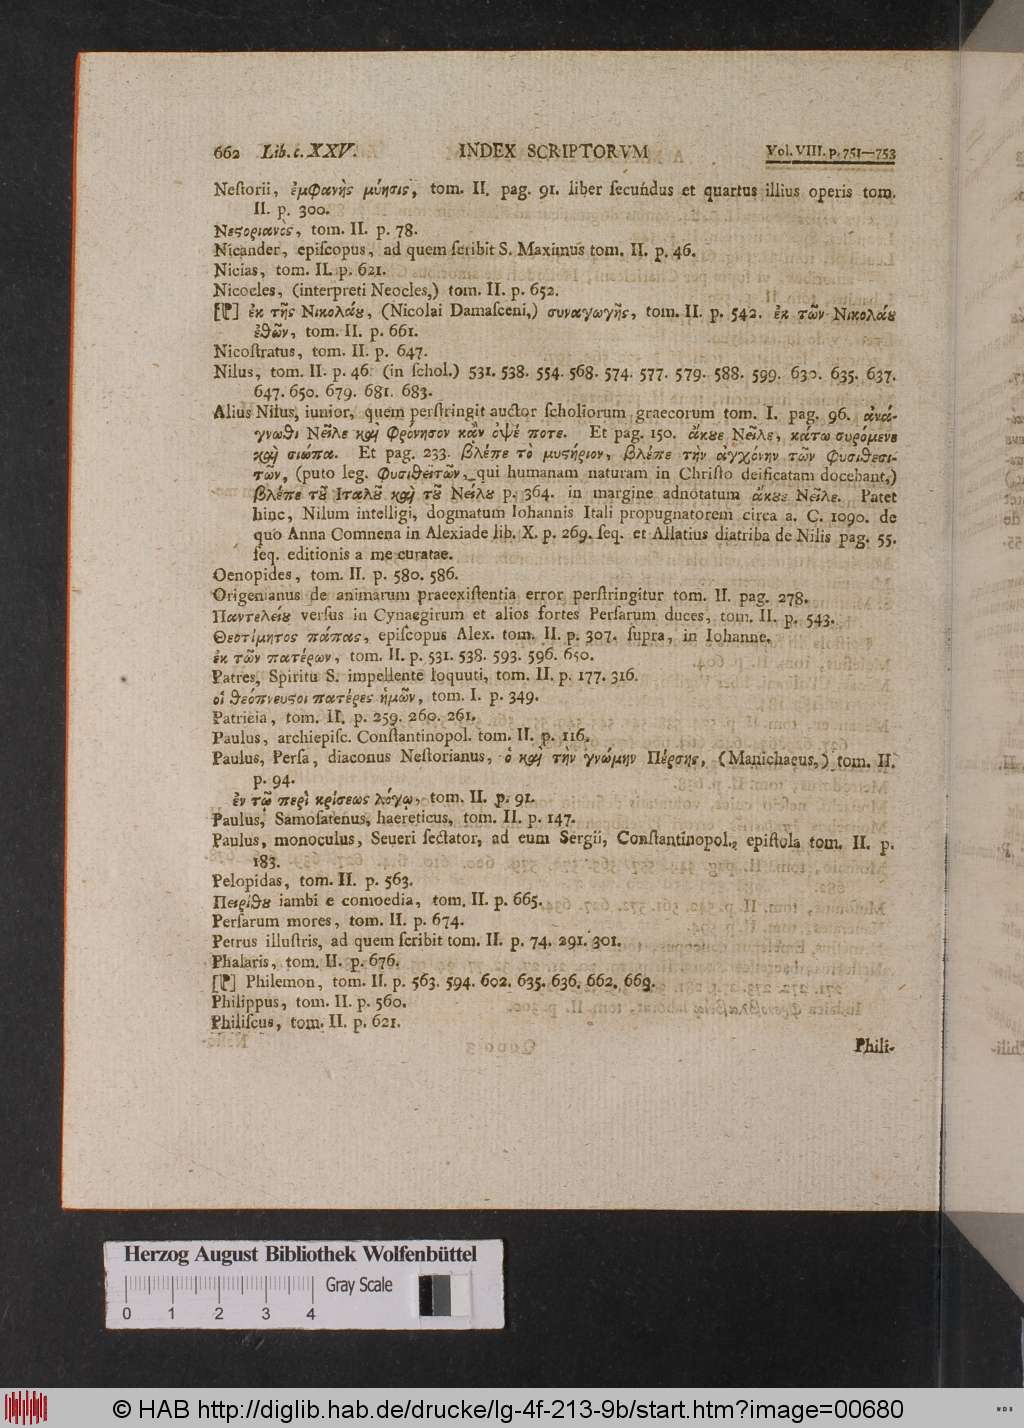 662 Lib. c. XXV. INDEX SCRIPTORVM Vol. VIII. p. 751—753
Neſtorii, ἐμφανὴς μύησις, tom. II. pag. 91. liber ſecundus et quartus illius operis tom.
II. p. 300.
Νεϛοριανὸς, tom. II. p. 78.
Nicander, epiſcopus, ad quem ſcribit S. Maximus tom. II. p. 46.
Nicias, tom. II. p. 621.
Nicocles, (interpreti Neocles,) tom. II. p. 652.
[P] ἐκ τῆς Νικολάȣ, (Nicolai Damaſceni,) συναγωγῆς, tom. II. p. 542. ἐκ τῶν Νικολάȣ
ἐθῶν, tom. II. p. 661.
Nicoſtratus, tom. II. p. 647.
Nilus, tom. II. p. 46. (in ſchol.) 531. 538. 554. 568. 574. 577. 579. 588. 599. 630. 635. 637.
647. 650. 679. 681. 683.
Alius Nilus, iunior, quem perſtringit auctor ſcholiorum graecorum tom. I. pag. 96. ἀνά-
γνωθι Νεῖλε καὶ φρόνησον κἂν ὀψέ ποτε. Et pag. 150. ἄκȣε Νεῖλε, κάτω συρόμενε
καὶ σιώπα. Et pag. 233. βλέπε τὸ μυϛήριον, βλέπε τὴν ἀγχόνην τῶν φυσιθεσι-
τῶν, (puto leg. φυσιθεϊτῶν, qui humanam naturam in Chriſto deificatam docebant,)
βλέπε τȣ͂ Ιταλȣ͂ καὶ τȣ͂ Νείλȣ p. 364. in margine adnotatum ἄκȣε Νεῖλε. Patet
hinc, Nilum intelligi, dogmatum Iohannis Itali propugnatorem circa a. C. 1090. de
quo Anna Comnena in Alexiade lib. X. p. 269. ſeq. et Allatius diatriba de Nilis pag. 55.
ſeq. editionis a me curatae.
Oenopides, tom. II. p. 580. 586.
Origenianus de animarum praeexiſtentia error perſtringitur tom. II. pag. 278.
Παντελείȣ verſus in Cynaegirum et alios fortes Perſarum duces, tom. II. p. 543.
Θεοτίμητος πάπας, epiſcopus Alex. tom. II. p. 307. ſupra, in Iohanne.
ἐκ τῶν πατέρων, tom. II. p. 531. 538. 593. 596. 650.
Patres, Spiritu S. impellente loquuti, tom. II. p. 177. 316.
οἱ θεόπνευϛοι πατέρες ἡμῶν, tom. I. p. 349.
Patricia, tom. II. p. 259. 260. 261.
Paulus, archiepiſc. Conſtantinopol. tom. II. p. 116.
Paulus, Perſa, diaconus Neſtorianus, ὁ καὶ τὴν γνώμην Πέρσης, (Manichaeus,) tom. II.
p. 94.
ἐν τῷ περὶ κρίσεως λόγῳ, tom. II. p. 91.
Paulus, Samoſatenus, haereticus, tom. II. p. 147.
Paulus, monoculus, Seueri ſectator, ad eum Sergii, Conſtantinopol., epiſtola tom. II. p.
183.
Pelopidas, tom. II. p. 563.
Πειρίθȣ iambi e comoedia, tom. II. p. 665.
Perſarum mores, tom. II. p. 674.
Petrus illuſtris, ad quem ſcribit tom. II. p. 74. 291. 301.
Phalaris, tom. II. p. 676.
[P] Philemon, tom. II. p. 563. 594. 602. 635. 636. 662. 669.
Philippus, tom. II. p. 560.
Philiſcus, tom. II. p. 621.
Phili-
Herzog August Bibliothek Wolfenbüttel
Gray Scale
0 1 2 3 4
© HAB http://diglib.hab.de/drucke/lg-4f-213-9b/start.htm?image=00680